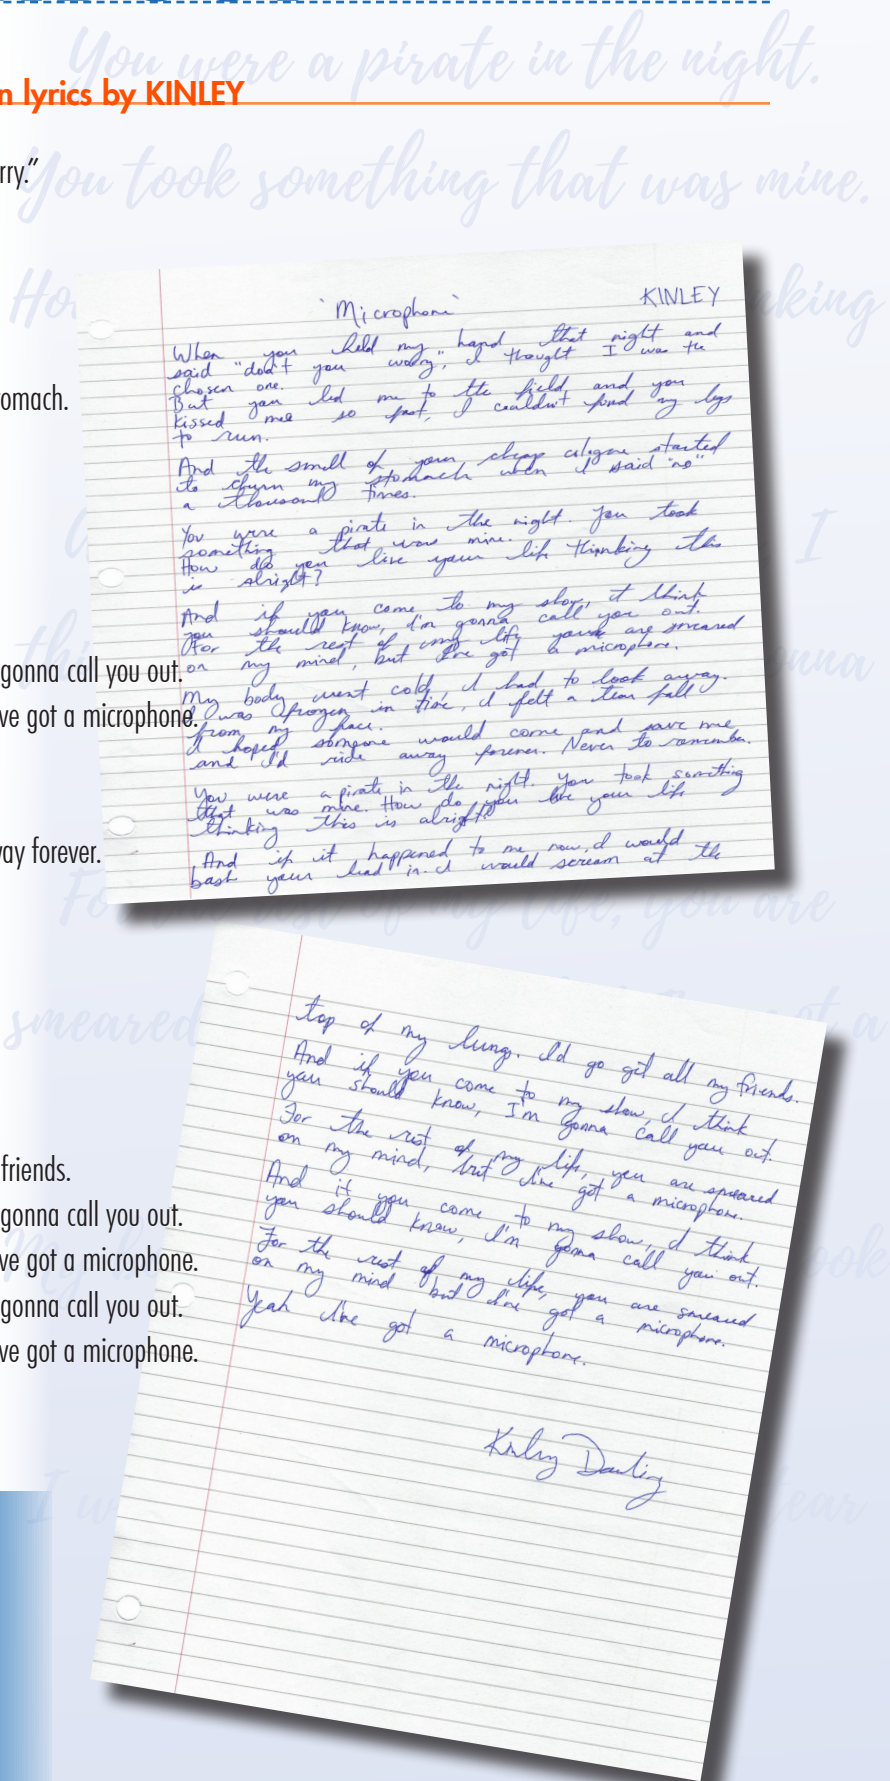 You were a pirate in the night.
n lyrics by KINLEY
rry.”
You took something that was mine.
Ho
nking
omach.
I
thi
onna
gonna call you out.
ve got a microphone.
vay forever.
For the rest of my life, you are
smeared
ot a
friends.
gonna call you out.
ve got a microphone.
gonna call you out.
ve got a microphone.
My
ook
I w
tear
`Microphone`
KINLEY
When you held my hand that night and
said "don't you worry", I thought I was the
chosen one.
But you led me to the field, and you
kissed me so fast, I couldn't find my legs
to run.
And the smell of your cheap cologne started
to churn my stomach when I said "no"
a thousand times.
You were a pirate in the night. You took
something that was mine.
How do you live your life thinking this
is alright?
And if you come to my show, I think
you should know, I'm gonna call you out.
For the rest of my life you are smeared
on my mind, but I've got a microphone.
My body went cold, I had to look away.
I was frozen in time, I felt a tear fall
from my face.
I hoped someone would come and save me
and I'd ride away forever. Never to remember.
You were a pirate in the night. You took something
that was mine. How do you live your life
thinking this is alright?
And if it happened to me now, I would
bash your head in. I would scream at the
top of my lungs. I'd go get all my friends.
And if you come to my show, I think
you should know, I'm gonna call you out.
For the rest of my life, you are smeared
on my mind, but I've got a microphone.
And if you come to my show, I think
you should know, I'm gonna call you out.
For the rest of my life, you are smeared
on my mind but I've got a microphone.
Yeah I've got a microphone.
Kinley Dowling